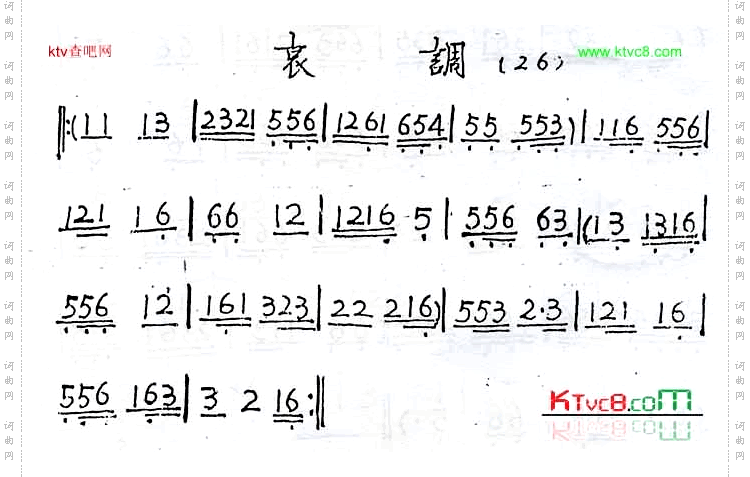 ktv查吧网 哀 調 (26) www.ktvc8.com
‖:(11 13 | 2321 556 | 1261 654 | 55 553) | 116 556 |
121 16 | 66 12 | 1216 5 | 556 63 | (13 1316 |
556 12 | 161 323 | 22 216) | 553 2·3 | 121 16 |
556 163 | 3 2 16 :‖
KTvc8.com
词曲网